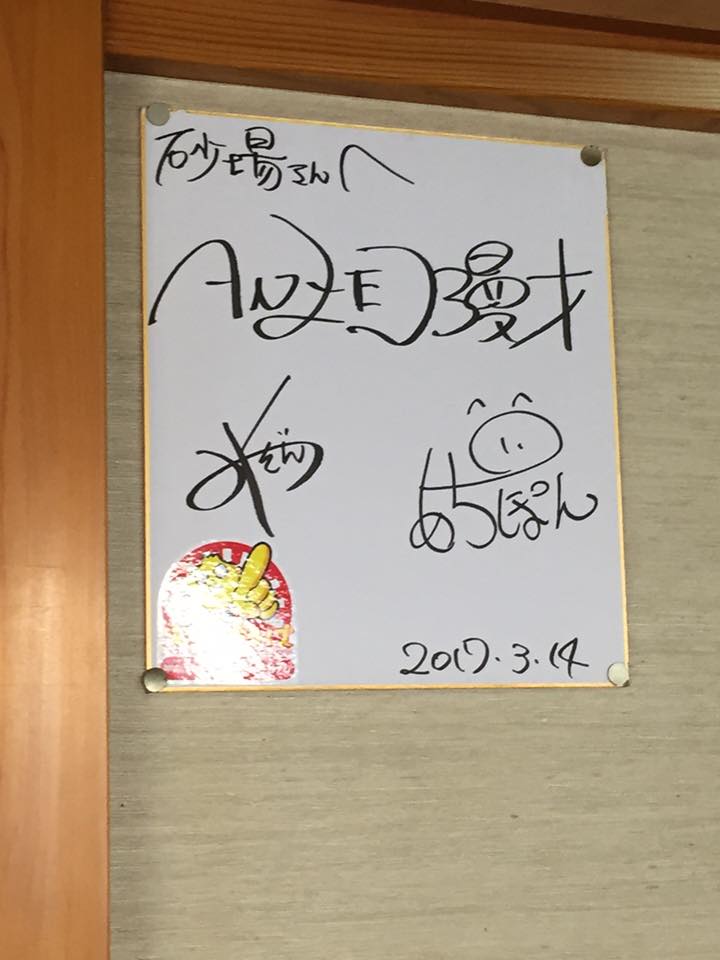 砂場さんへ
ANZEN漫才
みやぞん
あらぽん
2017.3.14